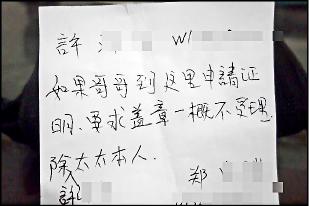 許
如果哥哥到这里申請证
明,要求盖章一概不受理.
除太太本人.
郑
許